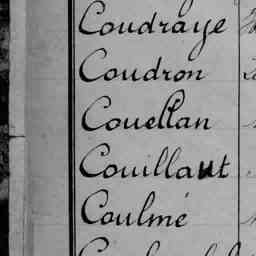 Coudraye
Coudron
Couellan
Couillaut
Coulmé